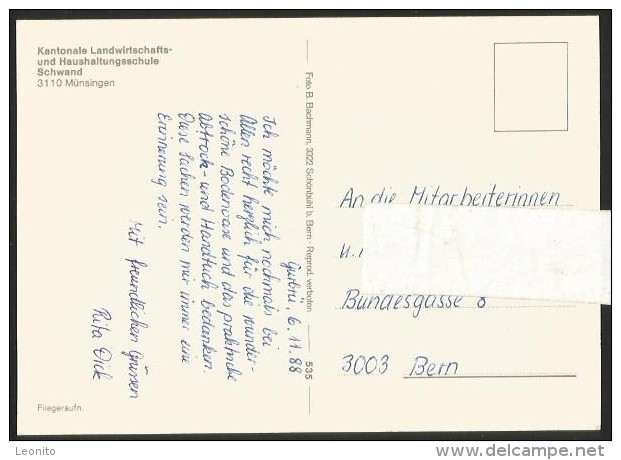 Kantonale Landwirtschafts-
und Haushaltungsschule
Schwand
3110 Münsingen
Gurbrü, 6.11.88
Ich möchte mich nochmals bei
Allen recht herzlich für die wunder-
schöne Bodenvase und das praktische
Abtrock- und Handtuch bedanken.
Diese Sachen werden mir immer eine
Erinnerung sein.
Mit freundlichen Grüssen
Rita Dick
Fliegeraufn.
Foto B. Bachmann, 3322 Schönbühl b. Bern - Reprod. verboten
535
An die Mitarbeiterinnen
u.
Bundesgasse 8
3003 Bern
Leonito
delcampe.net